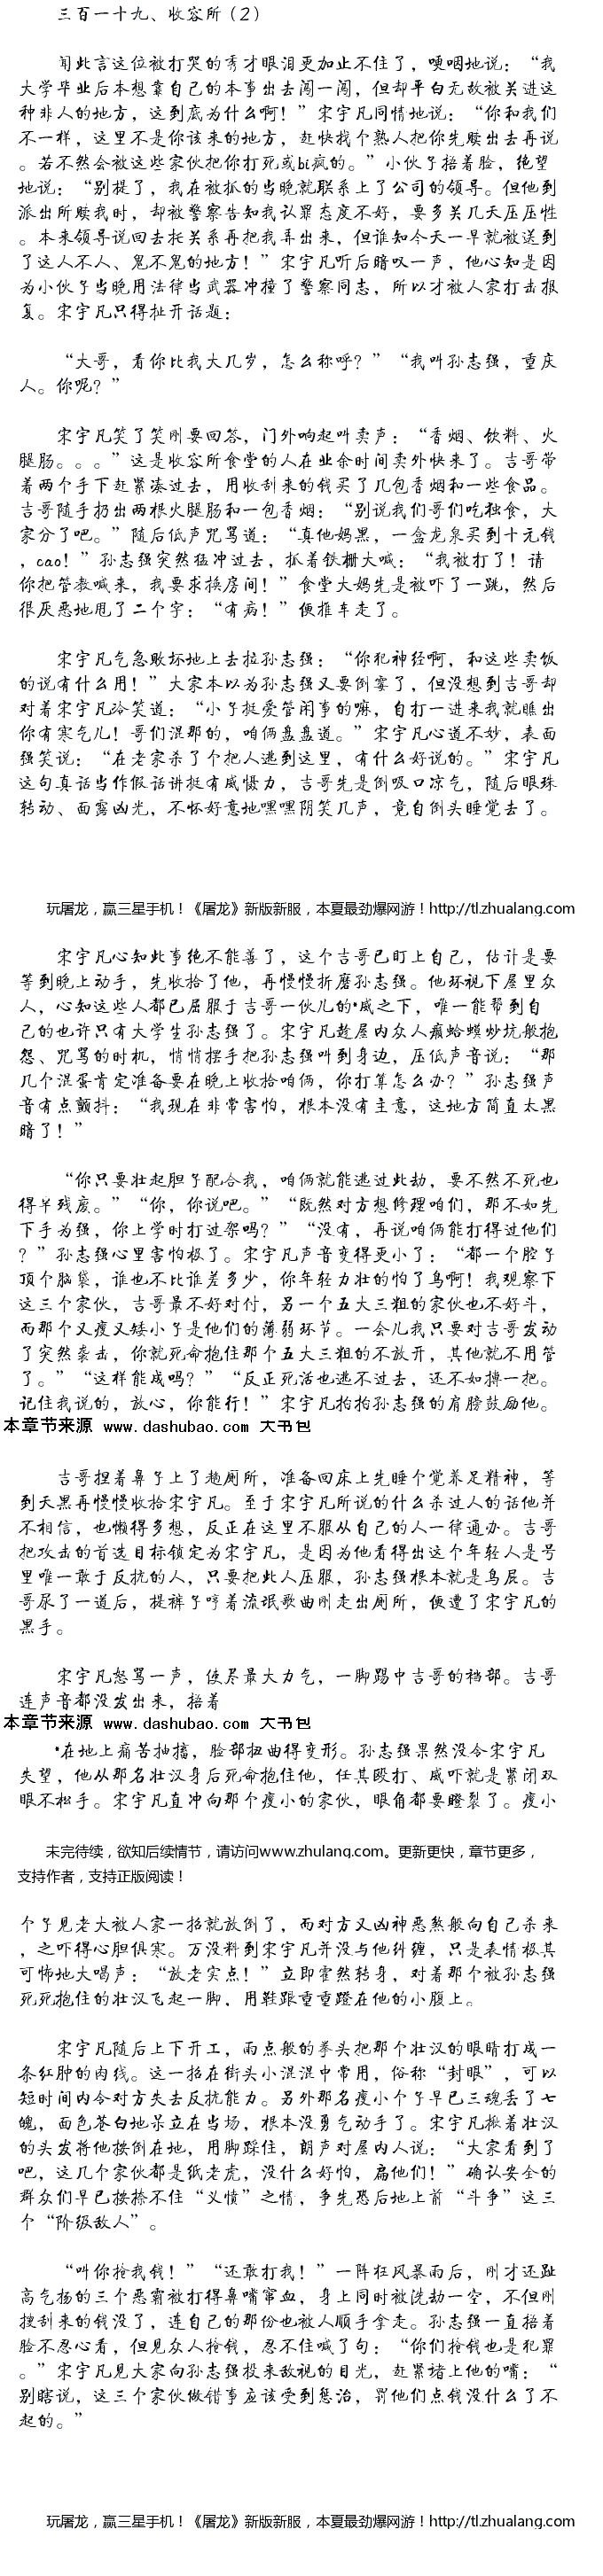 三百一十九、收容所（2）
闻此言这位被打哭的秀才眼泪更加止不住了，哽咽地说：“我
大学毕业后本想靠自己的本事出去闯一闯，但却平白无故被关进这
种非人的地方，这到底为什么啊！”宋宇凡同情地说：“你和我们
不一样，这里不是你该来的地方，赶快找个熟人把你先赎出去再说
。若不然会被这些家伙把你打死或bi疯的。”小伙子捂着脸，绝望
地说：“别提了，我在被抓的当晚就联系上了公司的领导。但他到
派出所赎我时，却被警察告知我认罪态度不好，要多关几天压压性
。本来领导说回去托关系再把我弄出来，但谁知今天一早就被送到
了这人不人、鬼不鬼的地方！”宋宇凡听后暗叹一声，他心知是因
为小伙子当晚用法律当武器冲撞了警察同志，所以才被人家打击报
复。宋宇凡只得扯开话题：
“大哥，看你比我大几岁，怎么称呼？”“我叫孙志强，重庆
人。你呢？”
宋宇凡笑了笑刚要回答，门外响起叫卖声：“香烟、饮料、火
腿肠。。。”这是收容所食堂的人在业余时间卖外快来了。吉哥带
着两个手下赶紧凑过去，用收刮来的钱买了几包香烟和一些食品。
吉哥随手扔出两根火腿肠和一包香烟：“别说我们哥们吃独食，大
家分了吧。”随后低声咒骂道：“真他妈黑，一盒龙泉买到十元钱
，cao！”孙志强突然猛冲过去，扒着铁栅大喊：“我被打了！请
你把管教喊来，我要求换房间！”食堂大妈先是被吓了一跳，然后
很厌恶地甩了二个字：“有病！”便推车走了。
宋宇凡气急败坏地上去拉孙志强：“你犯神经啊，和这些卖饭
的说有什么用！”大家本以为孙志强又要倒霉了，但没想到吉哥却
对着宋宇凡冷笑道：“小子挺爱管闲事的嘛，自打一进来我就瞧出
你有寒气儿！哥们混那的，咱俩盘盘道。”宋宇凡心道不妙，表面
强笑说：“在老家杀了个把人逃到这里，有什么好说的。”宋宇凡
这句真话当作假话讲挺有威慑力，吉哥先是倒吸口凉气，随后眼珠
转动、面露凶光，不怀好意地嘿嘿阴笑几声，竟自倒头睡觉去了。
玩屠龙，赢三星手机！《屠龙》新版新服，本夏最劲爆网游！http://tl.zhualang.com
宋宇凡心知此事绝不能善了，这个吉哥已盯上自己，估计是要
等到晚上动手，先收拾了他，再慢慢折磨孙志强。他环视下屋里众
人，心知这些人都已屈服于吉哥一伙儿的*威之下，唯一能帮到自
己的也许只有大学生孙志强了。宋宇凡趁屋内众人癞蛤蟆炒坑般抱
怨、咒骂的时机，悄悄摆手把孙志强叫到身边，压低声音说：“那
几个混蛋肯定准备要在晚上收拾咱俩，你打算怎么办？”孙志强声
音有点颤抖：“我现在非常害怕，根本没有主意，这地方简直太黑
暗了！”
“你只要壮起胆子配合我，咱俩就能逃过此劫，要不然不死也
得半残废。”“你，你说吧。”“既然对方想修理咱们，那不如先
下手为强，你上学时打过架吗？”“没有，再说咱俩能打得过他们
？”孙志强心里害怕极了。宋宇凡声音变得更小了：“都一个腔子
顶个脑袋，谁也不比谁差多少，你年轻力壮的怕了鸟啊！我观察下
这三个家伙，吉哥最不好对付，另一个五大三粗的家伙也不好斗，
而那个又瘦又矮小子是他们的薄弱环节。一会儿我只要对吉哥发动
了突然袭击，你就死命抱住那个五大三粗的不放开，其他就不用管
了。”“这样能成吗？”“反正死活也逃不过去，还不如搏一把。
记住我说的，放心，你能行！”宋宇凡拍拍孙志强的肩膀鼓励他。
本章节来源 www.dashubao.com 大书包
吉哥捏着鼻子上了趟厕所，准备回床上先睡个觉养足精神，等
到天黑再慢慢收拾宋宇凡。至于宋宇凡所说的什么杀过人的话他并
不相信，也懒得多想，反正在这里不服从自己的人一律通办。吉哥
把攻击的首选目标锁定为宋宇凡，是因为他看得出这个年轻人是号
里唯一敢于反抗的人，只要把此人压服，孙志强根本就是鸟屁。吉
哥尿了一道后，提裤子哼着流氓歌曲刚走出厕所，便遭了宋宇凡的
黑手。
宋宇凡怒骂一声，使尽最大力气，一脚踢中吉哥的裆部。吉哥
连声音都没发出来，捂着
本章节来源 www.dashubao.com 大书包
*在地上痛苦抽搐，脸部扭曲得变形。孙志强果然没令宋宇凡
失望，他从那名壮汉身后死命抱住他，任其殴打、威吓就是紧闭双
眼不松手。宋宇凡直冲向那个瘦小的家伙，眼角都要瞪裂了。瘦小
未完待续，欲知后续情节，请访问www.zhulang.com。更新更快，章节更多，
支持作者，支持正版阅读！
个子见老大被人家一招就放倒了，而对方又凶神恶煞般向自己杀来
，之吓得心胆俱寒。万没料到宋宇凡并没与他纠缠，只是表情极其
可怖地大喝声：“放老实点！”立即霍然转身，对着那个被孙志强
死死抱住的壮汉飞起一脚，用鞋跟重重蹬在他的小腹上。
宋宇凡随后上下开工，雨点般的拳头把那个壮汉的眼睛打成一
条红肿的肉线。这一招在街头小混混中常用，俗称“封眼”，可以
短时间内令对方失去反抗能力。另外那名瘦小个子早已三魂丢了七
魄，面色苍白地呆立在当场，根本没勇气动手了。宋宇凡揪着壮汉
的头发将他按倒在地，用脚踩住，朗声对屋内人说：“大家看到了
吧，这几个家伙都是纸老虎，没什么好怕，扁他们！”确认安全的
群众们早已按捺不住“义愤”之情，争先恐后地上前“斗争”这三
个“阶级敌人”。
“叫你抢我钱！”“还敢打我！”一阵狂风暴雨后，刚才还趾
高气扬的三个恶霸被打得鼻嘴窜血，身上同时被洗劫一空，不但刚
搜刮来的钱没了，连自己的那份也被人顺手拿走。孙志强一直捂着
脸不忍心看，但见众人抢钱，忍不住喊了句：“你们抢钱也是犯罪
。”宋宇凡见大家向孙志强投来敌视的目光，赶紧堵上他的嘴：“
别瞎说，这三个家伙做错事应该受到惩治，罚他们点钱没什么了不
起的。”
玩屠龙，赢三星手机！《屠龙》新版新服，本夏最劲爆网游！http://tl.zhualang.com